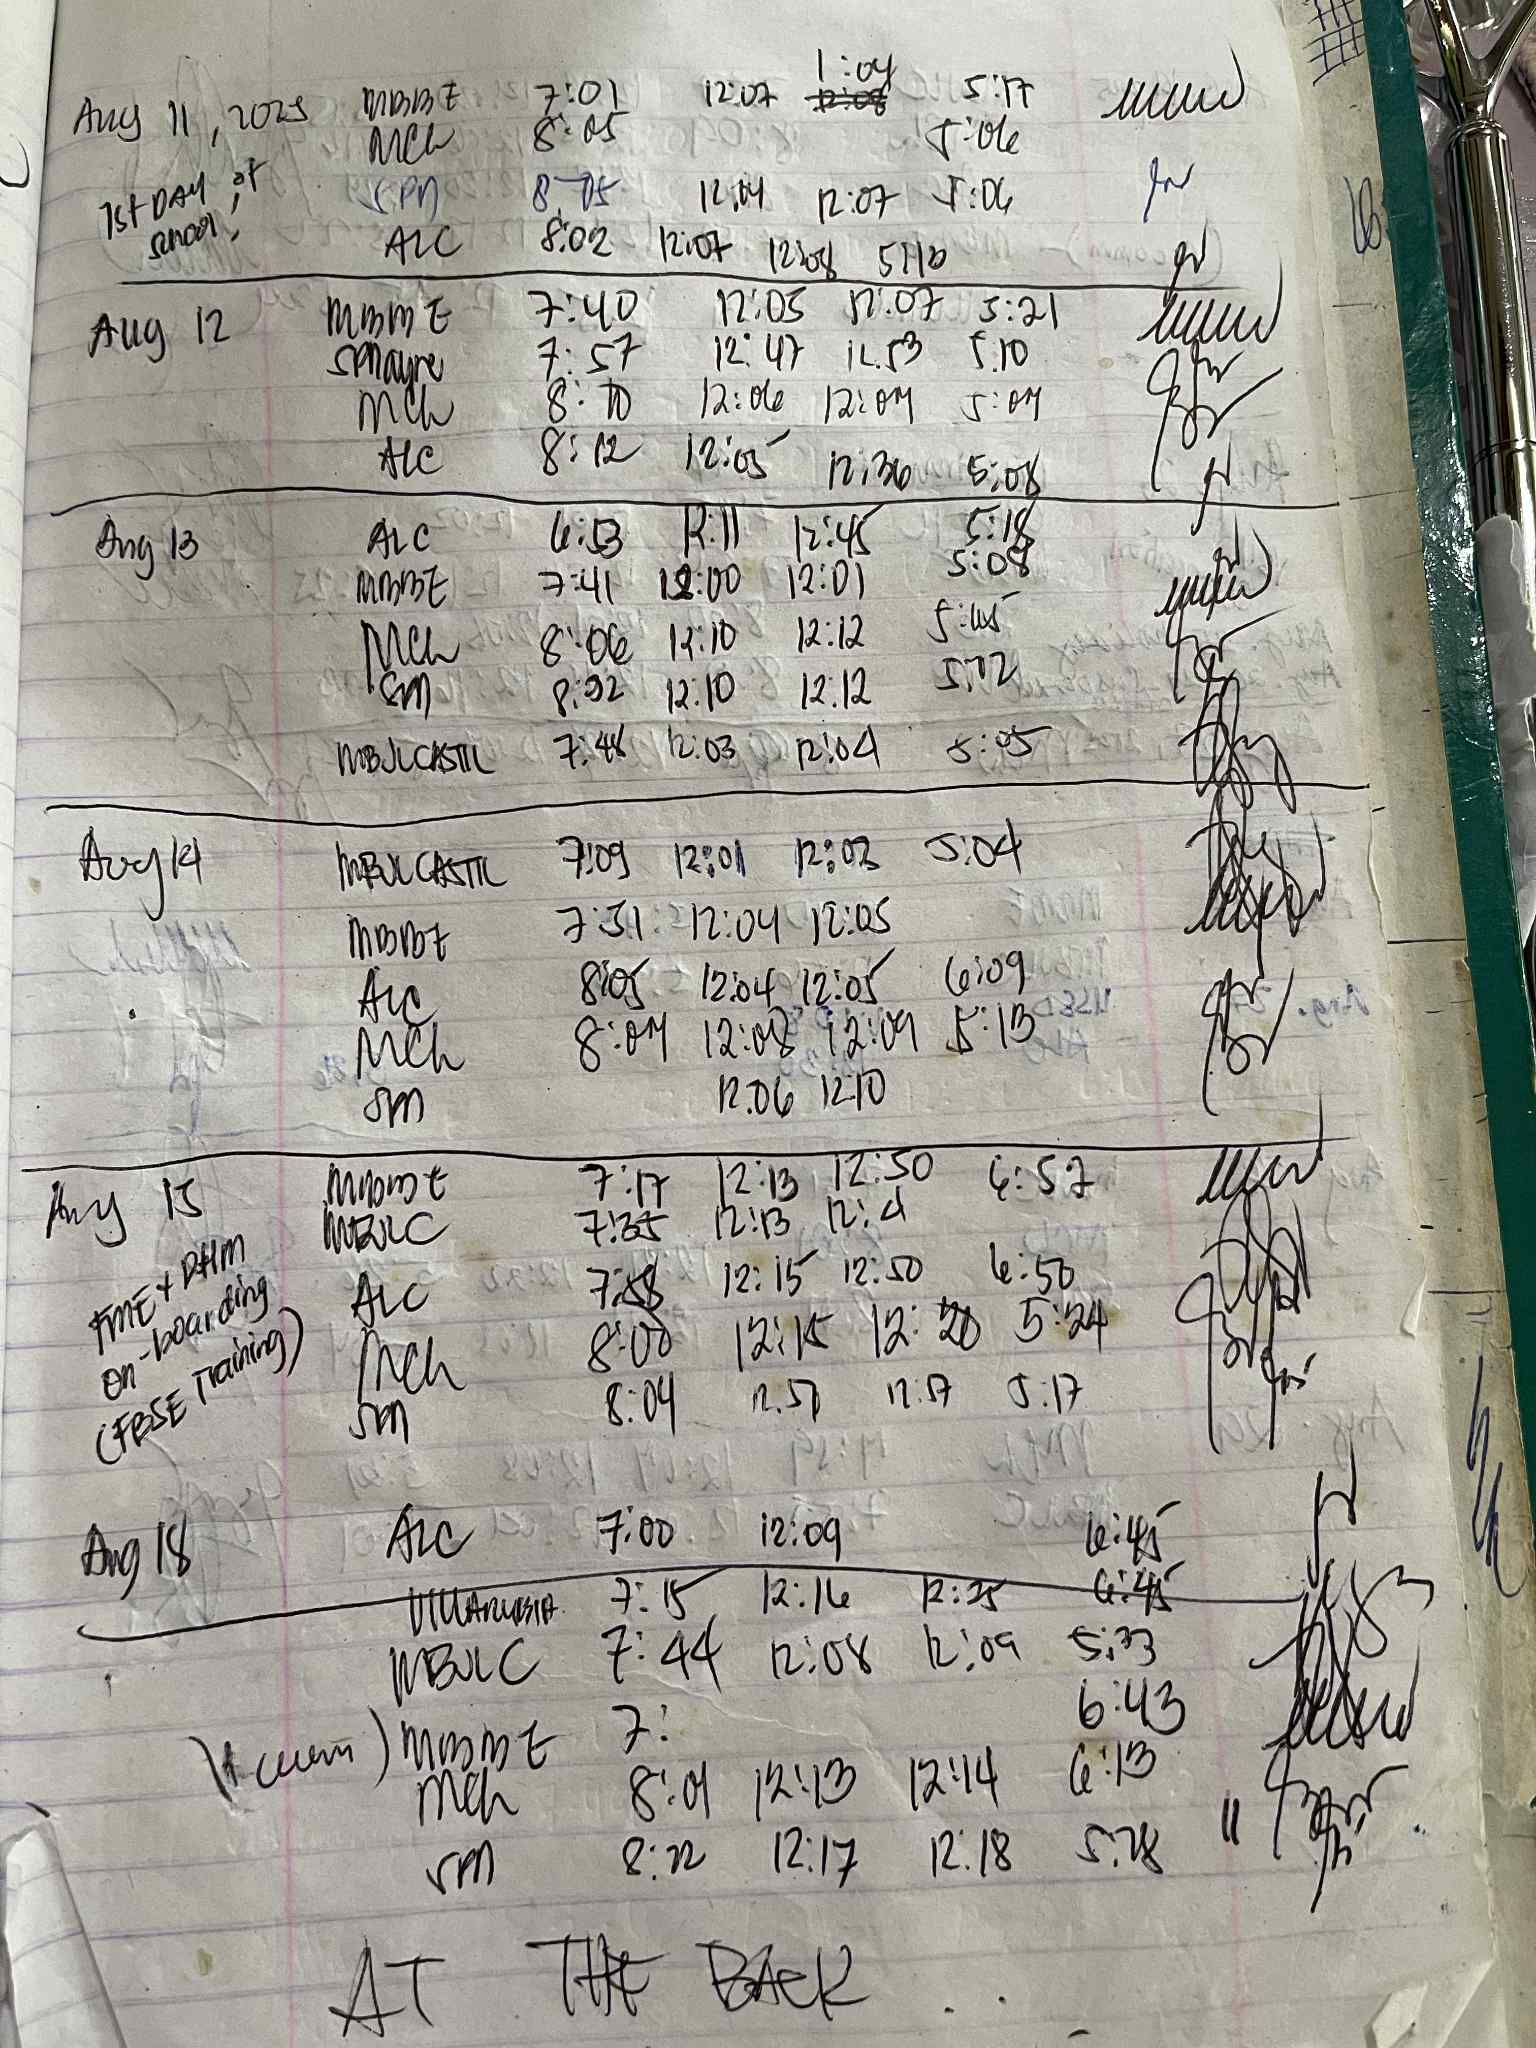 Aug 11, 2025 MBBE 7:01 12:07 12:08 1:04 5:17
MCh 8:05 5:06
1st DAY of school! SPM 8:05 12:04 12:07 5:06
ALC 8:02 12:07 12:08 5:10
Aug 12 MBBE 7:40 12:05 12:07 5:21
SPMayre 7:57 12:47 12:53 5:10
MCh 8:10 12:06 12:07 5:07
ALC 8:12 12:05 12:36 5:08
Aug 13 ALC 6:53 12:11 12:45 5:18
MBBE 7:41 12:00 12:01 5:08
MCh 8:06 12:10 12:12
SM 12:10 12:12
MBJLCASTIL 7:48 12:03 12:04 5:05
Aug 14 MBJLCASTIL 7:09 12:01 12:02 5:04
MBBE 7:31 12:04 12:05
ALC 8:05 12:04 12:05 6:09
MCh 8:07 12:08 12:09 5:13
SM 12:06 12:10
Aug 15 MBBE 7:17 12:13 12:50 6:57
MBJLC 7:35 12:13
FME & DHM on-boarding (FBSE Training) ALC 7:58 12:15 12:50 6:50
MCh 8:00 12:15 12:20 5:24
SM 8:04 12:57 5:17
Aug 18 ALC 7:00 12:09 6:45
7:15 12:16 12:25 6:45
MBJLC 7:44 12:08 12:09 5:33
MBBE 7: 6:43
MCh 8:01 12:13 12:14 6:13
SM 8:22 12:17 12:18 5:28 "
AT THE BACK . .